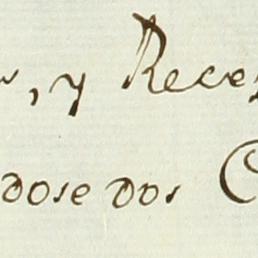 , y Rece
dose dos C